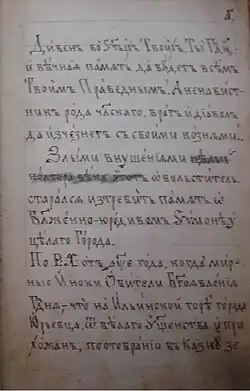 Дивенъ во С҃тыхъ Твоихъ, Ты Г҃ди,
и вѣчная память да будетъ всѣмъ
Твоимъ Праведнымъ. А ненавист-
никъ рода ч҃лческаго, врагъ и діаволъ
да изчезнетъ съ своими кознями.
Злыми внушеніями
ѡбольститель
старался изгребить память ѡ
Блаженно-юродивомъ Сүмонѣ у
цѣлаго Города.
По Р.Х. отъ года, когда мир-
ные Иноки Обители Бг҃оявленія
Г҃дня,- что на Ильинской горѣ города
Юрьевца, ѿ бѣлаго Сщ҃енства и при-
хожанъ, по отобраніи въ Казну зе-